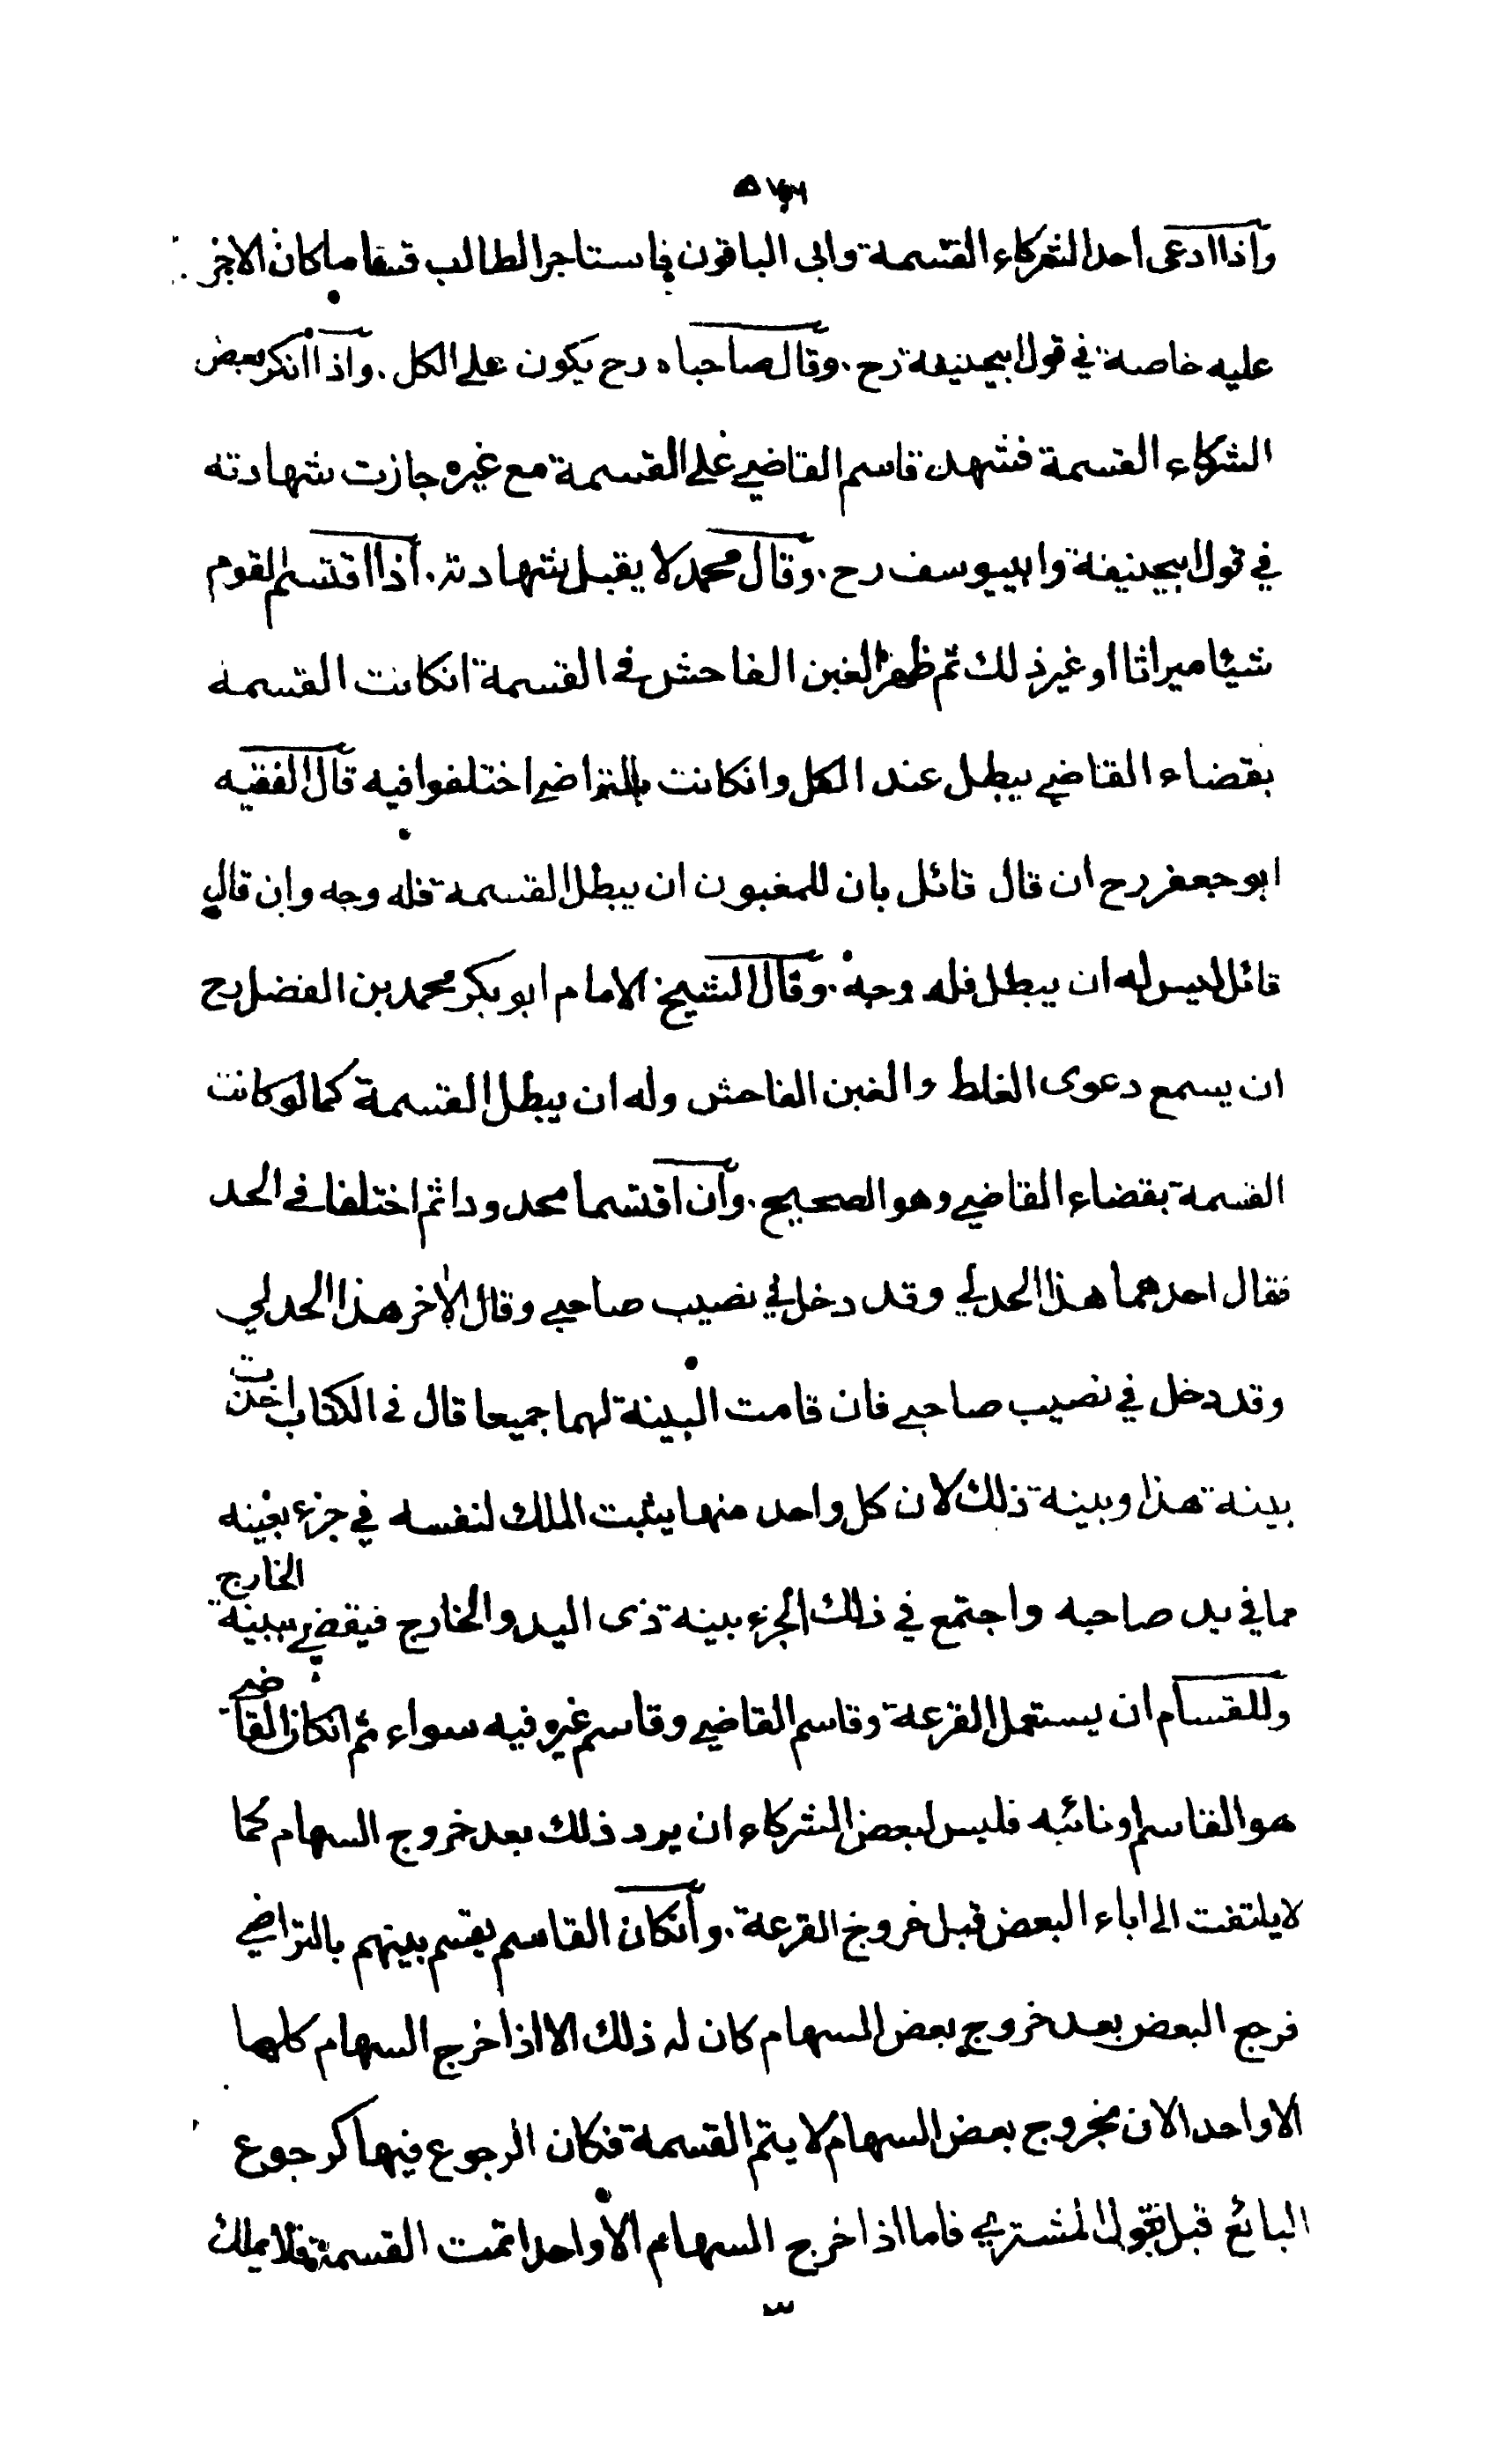 ٥٧٦
واذا ادعى احد الشركاء القسمة وابى الباقون فاستاجر الطالب قسّاما كان الاجر
عليه خاصة في قول ابيحنيفة رح. وقال صاحباه رح يكون على الكل. واذا انكر بعض
الشركاء القسمة فشهد قاسم القاضي على القسمة مع غيره جازت شهادته
في قول ابيحنيفة وابييوسف رح. وقال محمد لا يقبل شهادته. اذا اقتسم القوم
شيئا ميراثا او غير ذلك ثم ظهر الغبن الفاحش في القسمة انكانت القسمة
بقضاء القاضي يبطل عند الكل وانكانت بالتراضي اختلفوا فيه قال الفقيه
ابو جعفر رح ان قال قائل بان للمغبون ان يبطل القسمة فله وجه وان قال
قائل ليس له ان يبطل فله وجه. وقال الشيخ الامام ابو بكر محمد بن الفضل رح
ان يسمع دعوى الغلط والغبن الفاحش وله ان يبطل القسمة كما لو كانت
القسمة بقضاء القاضي وهو الصحيح. وان اقتسما محدودا ثم اختلفا في الحد
فقال احدهما هذا الحد لي وقد دخل في نصيب صاحبي وقال الاخر هذا الحد لي
وقد دخل في نصيب صاحبي فان قامت البينة لهما جميعا قال في الكتاب اخذت
بينة هذا وبينة ذلك لان كل واحد منها يثبت الملك لنفسه في جزء بعينه
مما في يد صاحبه واجتمع في ذلك الجزء بينة ذى اليد والخارج فيقضي ببينة الخارج
وللقسام ان يستعمل القرعة وقاسم القاضي وقاسم غيره فيه سواء ثم انكان القاضي
هو القاسم او نائبه فليس لبعض الشركاء ان يرد ذلك بعد خروج السهام كما
لا يلتفت الى اباء البعض قبل خروج القرعة. وانكان القاسم يقسم بينهم بالتراضي
فرجع البعض بعد خروج بعض السهام كان له ذلك الا اذا خرج السهام كلها
الا واحد الان بخروج بعض السهام لا يتم القسمة فكان الرجوع فيها كرجوع
البائع قبل قبول المشتري فاما اذا خرج السهام الا واحدا تمت القسمة فلا يملك